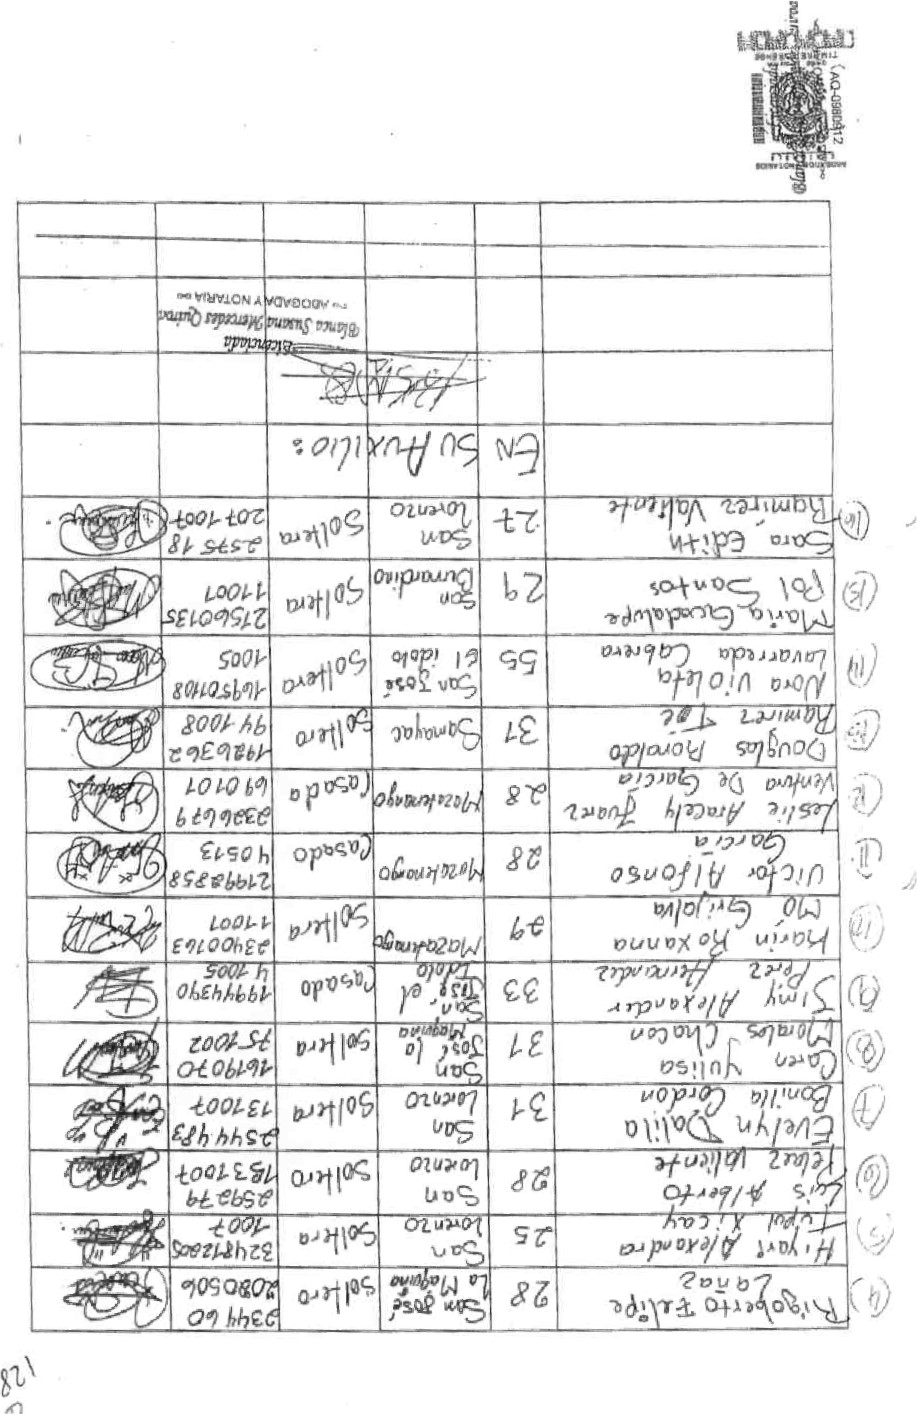 128
4 Rigoberto Felipe Zañaz 28 San José La Maquina soltero 234460 2080506
5 Hiyarl Alexandra Tupul Xicay 25 San Lorenzo Soltera 324812205 1007
6 Luis Alberto Pelaez Valiente 28 San Lorenzo Soltero 259279 1531007
7 Evelyn Dalila Bonilla Cordon 31 San Lorenzo Soltera 2544483 131007
8 Caren Yulisa Morales Chacon 31 San José la Maquina Soltera 1619070 751002
9 Jimy Alexander Perez Hernandez 33 San José, el Idolo Casado 19944340 41005
10 Karin Roxanna Mó Grijalva 29 Mazatenango Soltera 23400163 11001
11 Victor Alfonso Garcia 28 Mazatenango Casado 21992858 40513
12 Leslie Aracely Juarez Ventura De Garcia 28 Mazatenango Casada 2326679 690101
13 Douglas Ronaldo Ramirez Toc 31 Samayac Soltero 1926362 941008
14 Nora Violeta Lavarreda Cabrera 55 San José El idolo Soltera 169501108 1005
15 Maria Guadalupe Pol Santos 29 San Bernardino Soltera 27560135 11001
16 Sara Edith Ramirez Valiente 27 San Lorenzo Soltera 257518 2071007
EN SU AUXILIO:
Licenciada
Blanca Susana Mercedes Quiroa
ABOGADA Y NOTARIA
AQ-0980912